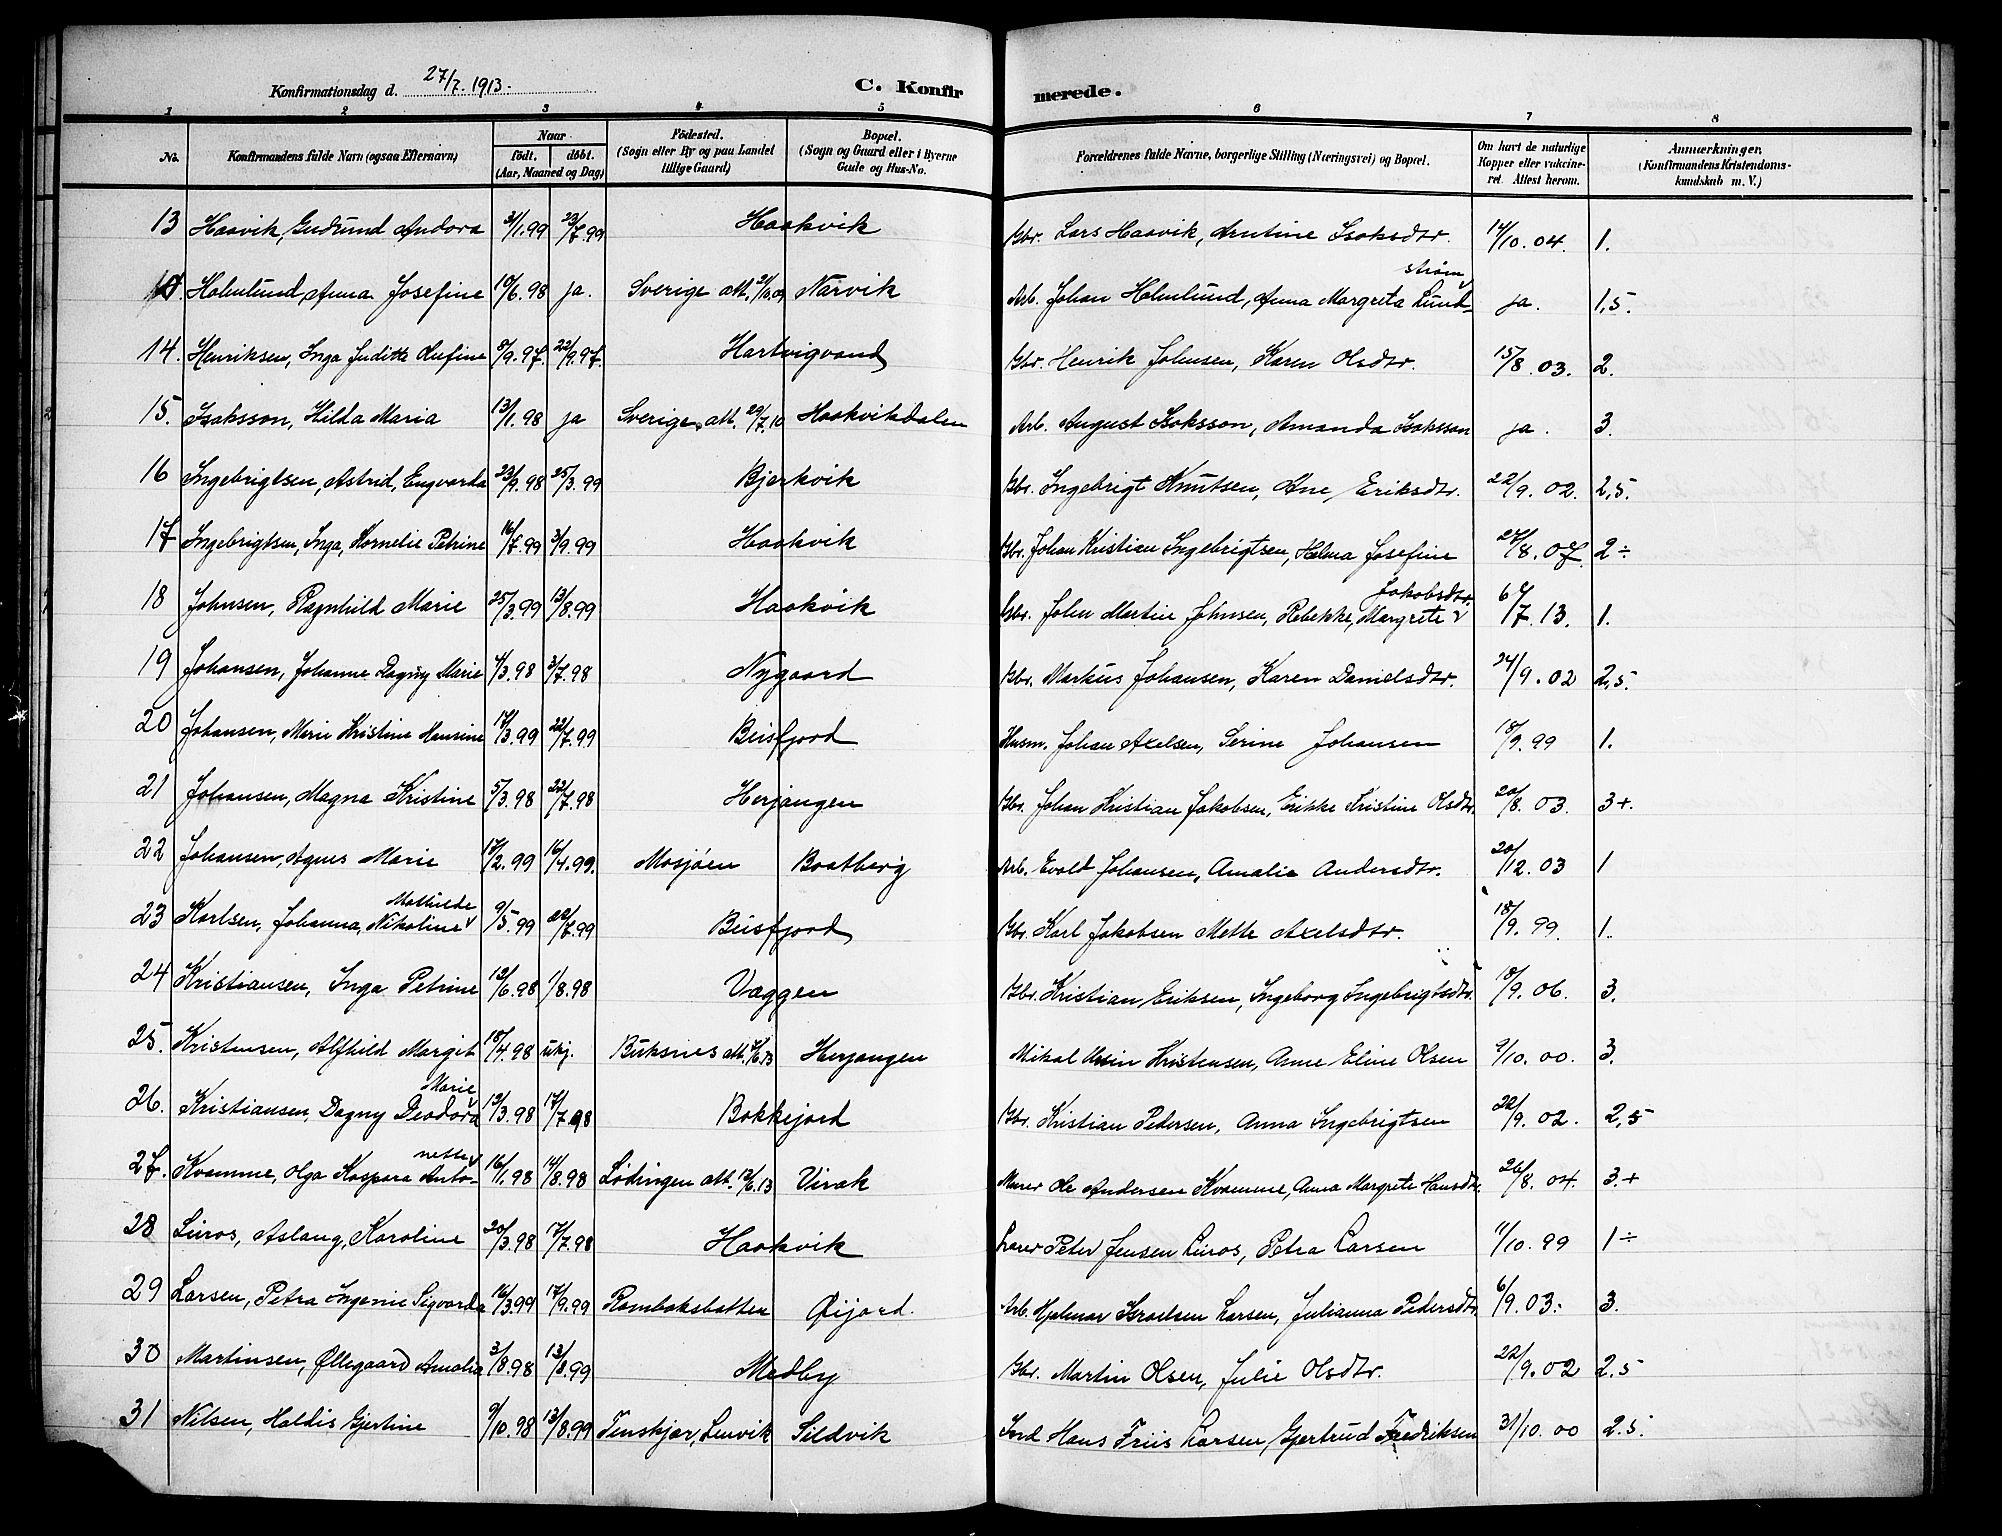 Konfirmationsdag d. 27/7. 1913.
C. Konfirmerede.
1 2 3 4 5 6 7 8
No. Konfirmandens fulde Navn (ogsaa Efternavn) Naar födt. döbt. (Aar, Maaned og Dag) Födested. (Sogn eller By og paa Landet tillige Gaard) Bopæl. (Sogn og Gaard eller i Byerne Gade og Hus-No. Forældrenes fulde Navne, borgerlige Stilling (Næringsvei) og Bopæl. Om havt de naturlige Kopper eller vakcineret. Attest herom. Anmærkninger. (Konfirmandens Kristendomskundskab m. V.)
13 Haavik, Gudrund Andora 3/1.99 23/7.99 Haakvik Gbr. Lars Haavik, Arntine Isaksdtr. 14/10.04. 1.
Holmlund, Anna Josefine 10/6.98 ja. Sverige att. Narvik Arb. Johan Holmlund, Anna Margreta Lundström ja. 1,5.
14. Henriksen, Inga Judithe Rufine 8/9.97. 22/9.97. Hartvigvand Gbr. Henrik Johnsen, Karen Olsdtr. 15/8.03. 2.
15. Isaksson, Hilda Maria 13/1.98 ja Sverige att. 29/7.10 Haakvikdalen Arb. August Isaksson, Amanda Isaksson ja. 3.
16 Ingebrigtsen, Astrid, Engvarda 23/9.98 25/3.99 Bjerkvik Gbr. Ingebrigt Knutsen, Ane Eriksdtr. 22/9.02. 2,5.
17 Ingebrigtsen, Inga, Kornelie Petrine 16/7.99 3/9.99 Haakvik Gbr. Johan Kristian Ingebrigtsen, Helma Josefine 27/8.07. 2÷
18 Johnsen, Ragnhild Marie 25/3.99 13/8.99 Haakvik Gbr. John Martin Johnsen, Rebekke, Margrete Jakobsdtr. 6/7.13. 1.
19 Johansen, Johanne Dagny Marie 4/3.98 3/7.98 Nygaard Gbr. Markus Johansen, Karen Danielsdtr. 24/9.02 2,5.
20 Johansen, Marie Kristine Hansine 17/3.99 23/7.99 Beisfjord Husm. Johan Axelsen, Serine Johansen 18/9.99 1.
21 Johansen, Magna Kristine 5/3.98 22/7.98 Herjangen Gbr. Johan Kristian Jakobsen, Erikke Kristine Olsdtr. 20/8.03. 3+.
22 Johansen, Agnes Marie 17/2.99 16/4.99. Mosjöen Baatberg Arb. Evald Johansen, Amalie Andersdtr. 20/12.03 1
23 Karlsen, Johanna, Nikoline Mathilde 9/5.99 22/7.99 Beisfjord Gbr. Karl Jakobsen Mette Axelsdtr. 18/9.99. 1.
24 Kristiansen, Inga Petrine 12/6.98 1/8.98 Væggen Gbr. Kristian Eriksen, Ingeborg Ingebrigtsdtr. 18/9.06. 3.
25. Kristensen, Alfhild Margit 18/4.98 ukj. Buksnes att. Herjangen Mikal Kristensen, Anne Eline Olsen 9/10.00. 3.
26. Kristiansen, Dagny Deodora Marie 13/3.98 17/7.98 Bokkejord Gbr. Kristian Pedersen, Anna Ingebrigtsen 22/9.02. 2,5
27. Kvamme, Olga Kaspara Antonette 16/1.98 14/8.98 Lødingen att. 13/6.13 Virak Murer Ole Andersen Kvamme, Anna Margrete Hansdtr. 26/8.04. 3.+
28 Luros, Aslaug, Karoline 20/3.98 17/7.98 Haakvik Lærer Peter Jensen Luros, Petra Larsen 11/10.99 1÷
29 Larsen, Petra Ingenie Sigvarda 16/3.99 17/9.99 Rombaksbotten Øijord. Arb. Hjalmar Israelsen Larsen, Julianna Pedersdtr. 6/9.03. 3.
30 Martinsen, Øllegaard Amalia 3/8.98 13/8.99 Medby Gbr. Martin Olsen, Julie Olsdtr. 22/9.02 2.5
31 Nilsen, Haldis Gjertine 9/10.98 13/8.99 Tenskjær, Lenvik Sildvik Hans Friis Larsen, Gjertrud Fredriksen 31/10.00 2.5.